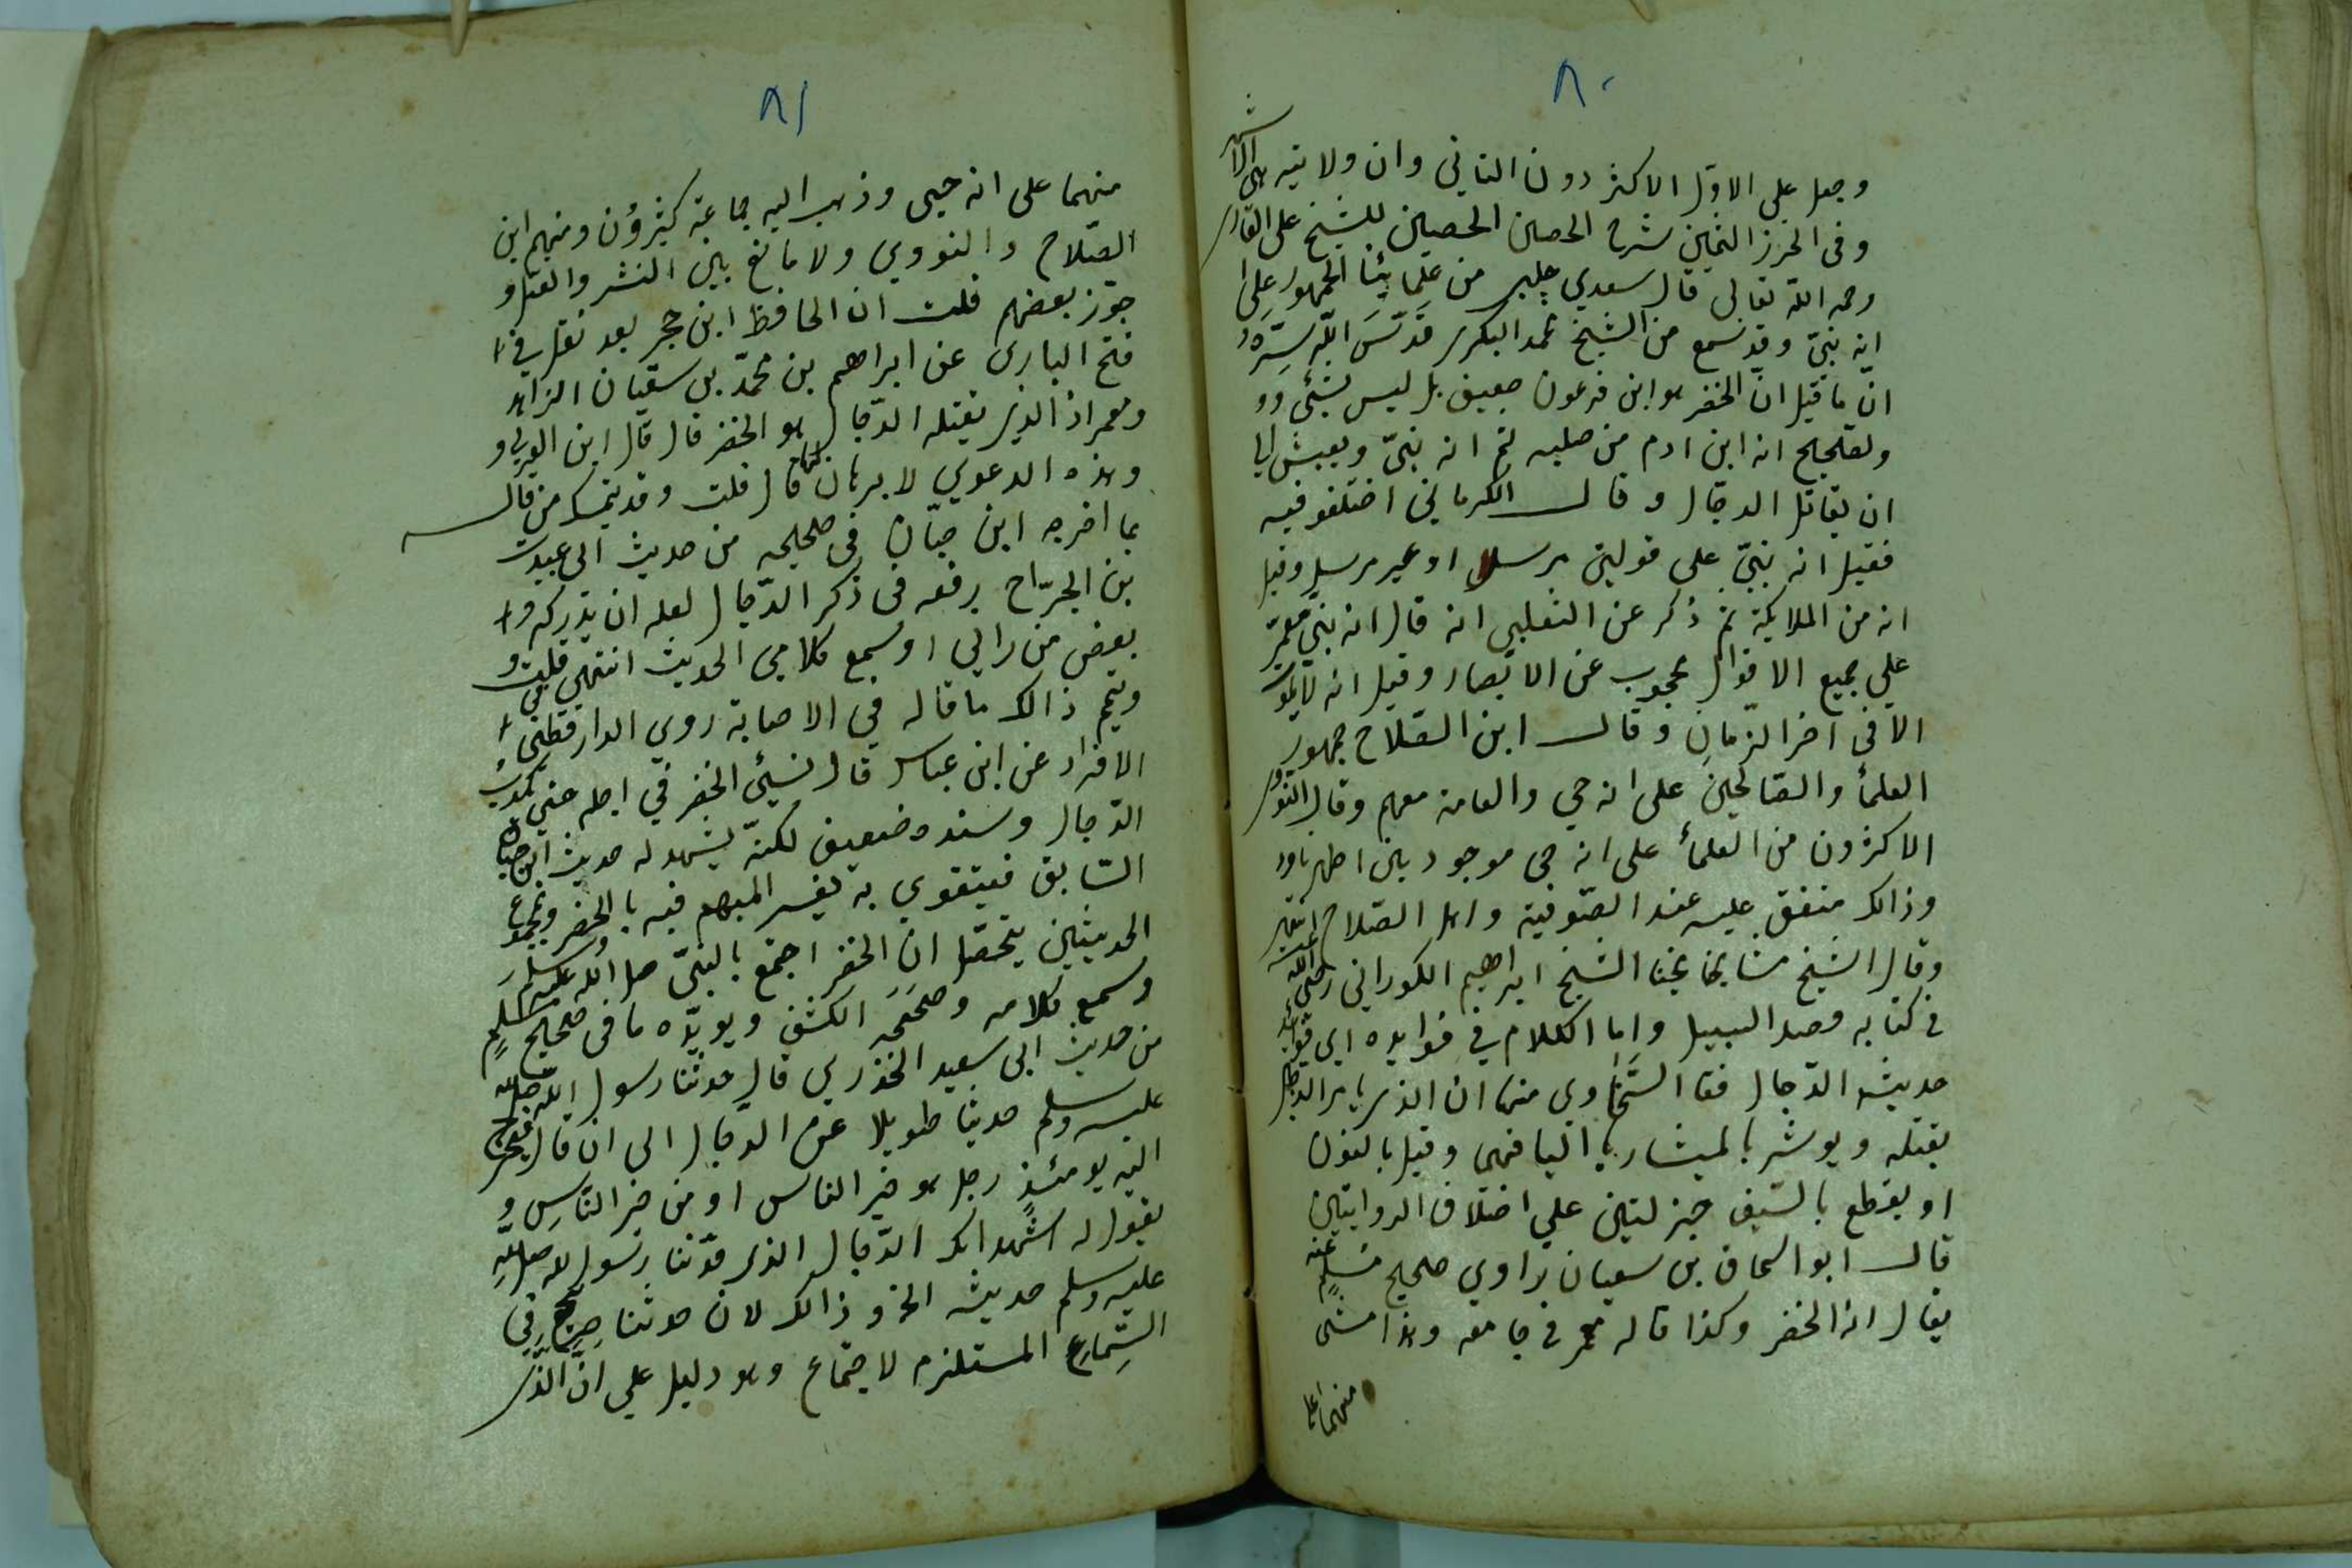 ٨٠
وجعل على الاوّل الاكثر دون الثاني وان ولايته هي الاشهر
وفى الحرز الثمين شرح الحصن الحصين للشيخ على القارى
رحمه الله تعالى قال سعدي چلبى من علمائنا الجمهور على
انه نبىّ وقد نسمع من الشيخ محمد البكرى قدّس الله سرّه
انّ ما قيل انّ الخضر هو ابن فرعون ضعيف بل ليس بشئ
ولصحيح انه ابن ادم من صلبه ثم انه نبىّ ويعيش الى
ان يقاتل الدجال وقال الكرماني اختلفو فيه
فقيل انه نبىّ على قولين مرسل او غير مرسل وقيل
انه من الملايكة ثم ذكر عن الثعلبى انه قال انه نبىّ معمّر
علي جميع الاقوال محجوب عن الابصار وقيل انه لا يموت
الا فى اخر الزّمان وقال ابن الصّلاح جمهور
العلمأ والصّالحين على انه حي والعامة معهم وقال النووى
الاكثرون من العلمأ على انه حى موجود بين اظهرنا
وذالك متفق عليه عند الصّوفية واهل الصّلاح انتهى
وقال الشيخ مشايخنا الشيخ ابراهيم الكوراني رضى الله عنه
فى كتابه قصد السبيل واما الكلام في فوايده اي فوايد
حديث الدّجال فقا السّخاوي منها ان الذى يامر الدجال
بقتله ويوشر بالميشار بالتيا فيهما وقيل بالنون
او يقطع بالسّيف جزلتين علي اختلاف الروايتين
قال ابو اسحاق بن سفيان راوي صحيح مسلم عنه
يقال انه الخضر وكذا قاله معمر فى جامعه وهذا مشى
منهما على
٨١
منهما على انه حيى وذهب اليه جماعة كثيرؤن ومنهم ابن
الصّلاح والنووي ولا مانع بين النشر والقتل و
جوّز بعضهم قلت ان الحافظ ابن حجر بعد نقل في
فتح البارى عن ابراهيم بن محمّد بن سقيان الزاهد
ومعمر ان الذي يقتله الدّجال هو الخضر قال قال ابن العربي و
وهذه الدعوي لا برهان لها قال قلت وقد يتمسك من قاله
بما اخرجه ابن حبّان فى صحيحه من حديث ابى عبيدت
بن الجرّاح رفعه فى ذكر الدّجال لعله ان يدركه
بعض من راني او سمع كلامي الحديث انتهى قلت و
ويتم ذالك ما قاله في الاصابة روي الدارقطنى فى
الافراد عن ابن عباس قال نسيئ الخضر في اجله حتي يكذب
الدّجال وسنده ضعيف لكنّه يشهد له حديث ابن حبان
السّابق فيتقوي به يفسر المبهم فيه بالخضر وبمجموع
الحديثين يتحصّل انّ الخضر اجتمع بالنبىّ صلى الله عليه وسلم
وسمع كلامه وصححه الكشف ويويّده ما فى صحيح مسلم
من حديث ابى سعيد الخذري قال حدثنا رسول الله صلى الله
عليه وسلم حديثا طويلا عن الدّجال الى ان قال فيخرج
اليه يومئذٍ رجل هو خير الناس او من خير النّاس و
يقول له اشهد انك الدّجال الذى حدّثنا رسول الله صلى الله
عليه وسلم حديثه الخ و ذالك لان حدثنا صريح في
السّماع المستلزم لاجتماع وهو دليل علي انّ الذى